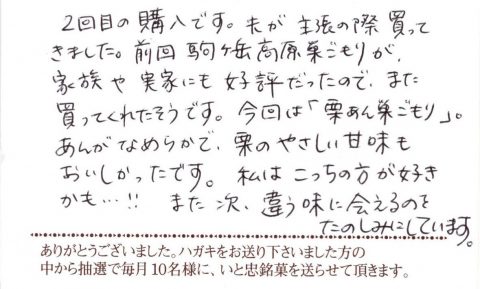 2回目の購入です。夫が主張の際買って
きました。前回駒ヶ岳高原巣ごもりが、
家族や実家にも好評だったので、また
買ってくれたそうです。今回は「栗あん巣ごもり」。
あんがなめらかで、栗のやさしい甘味も
おいしかったです。私はこっちの方が好き
かも…!! また次、違う味に会えるのを
たのしみにしています。
ありがとうございました。ハガキをお送り下さいました方の
中から抽選で毎月10名様に、いと忠銘菓を送らせて頂きます。